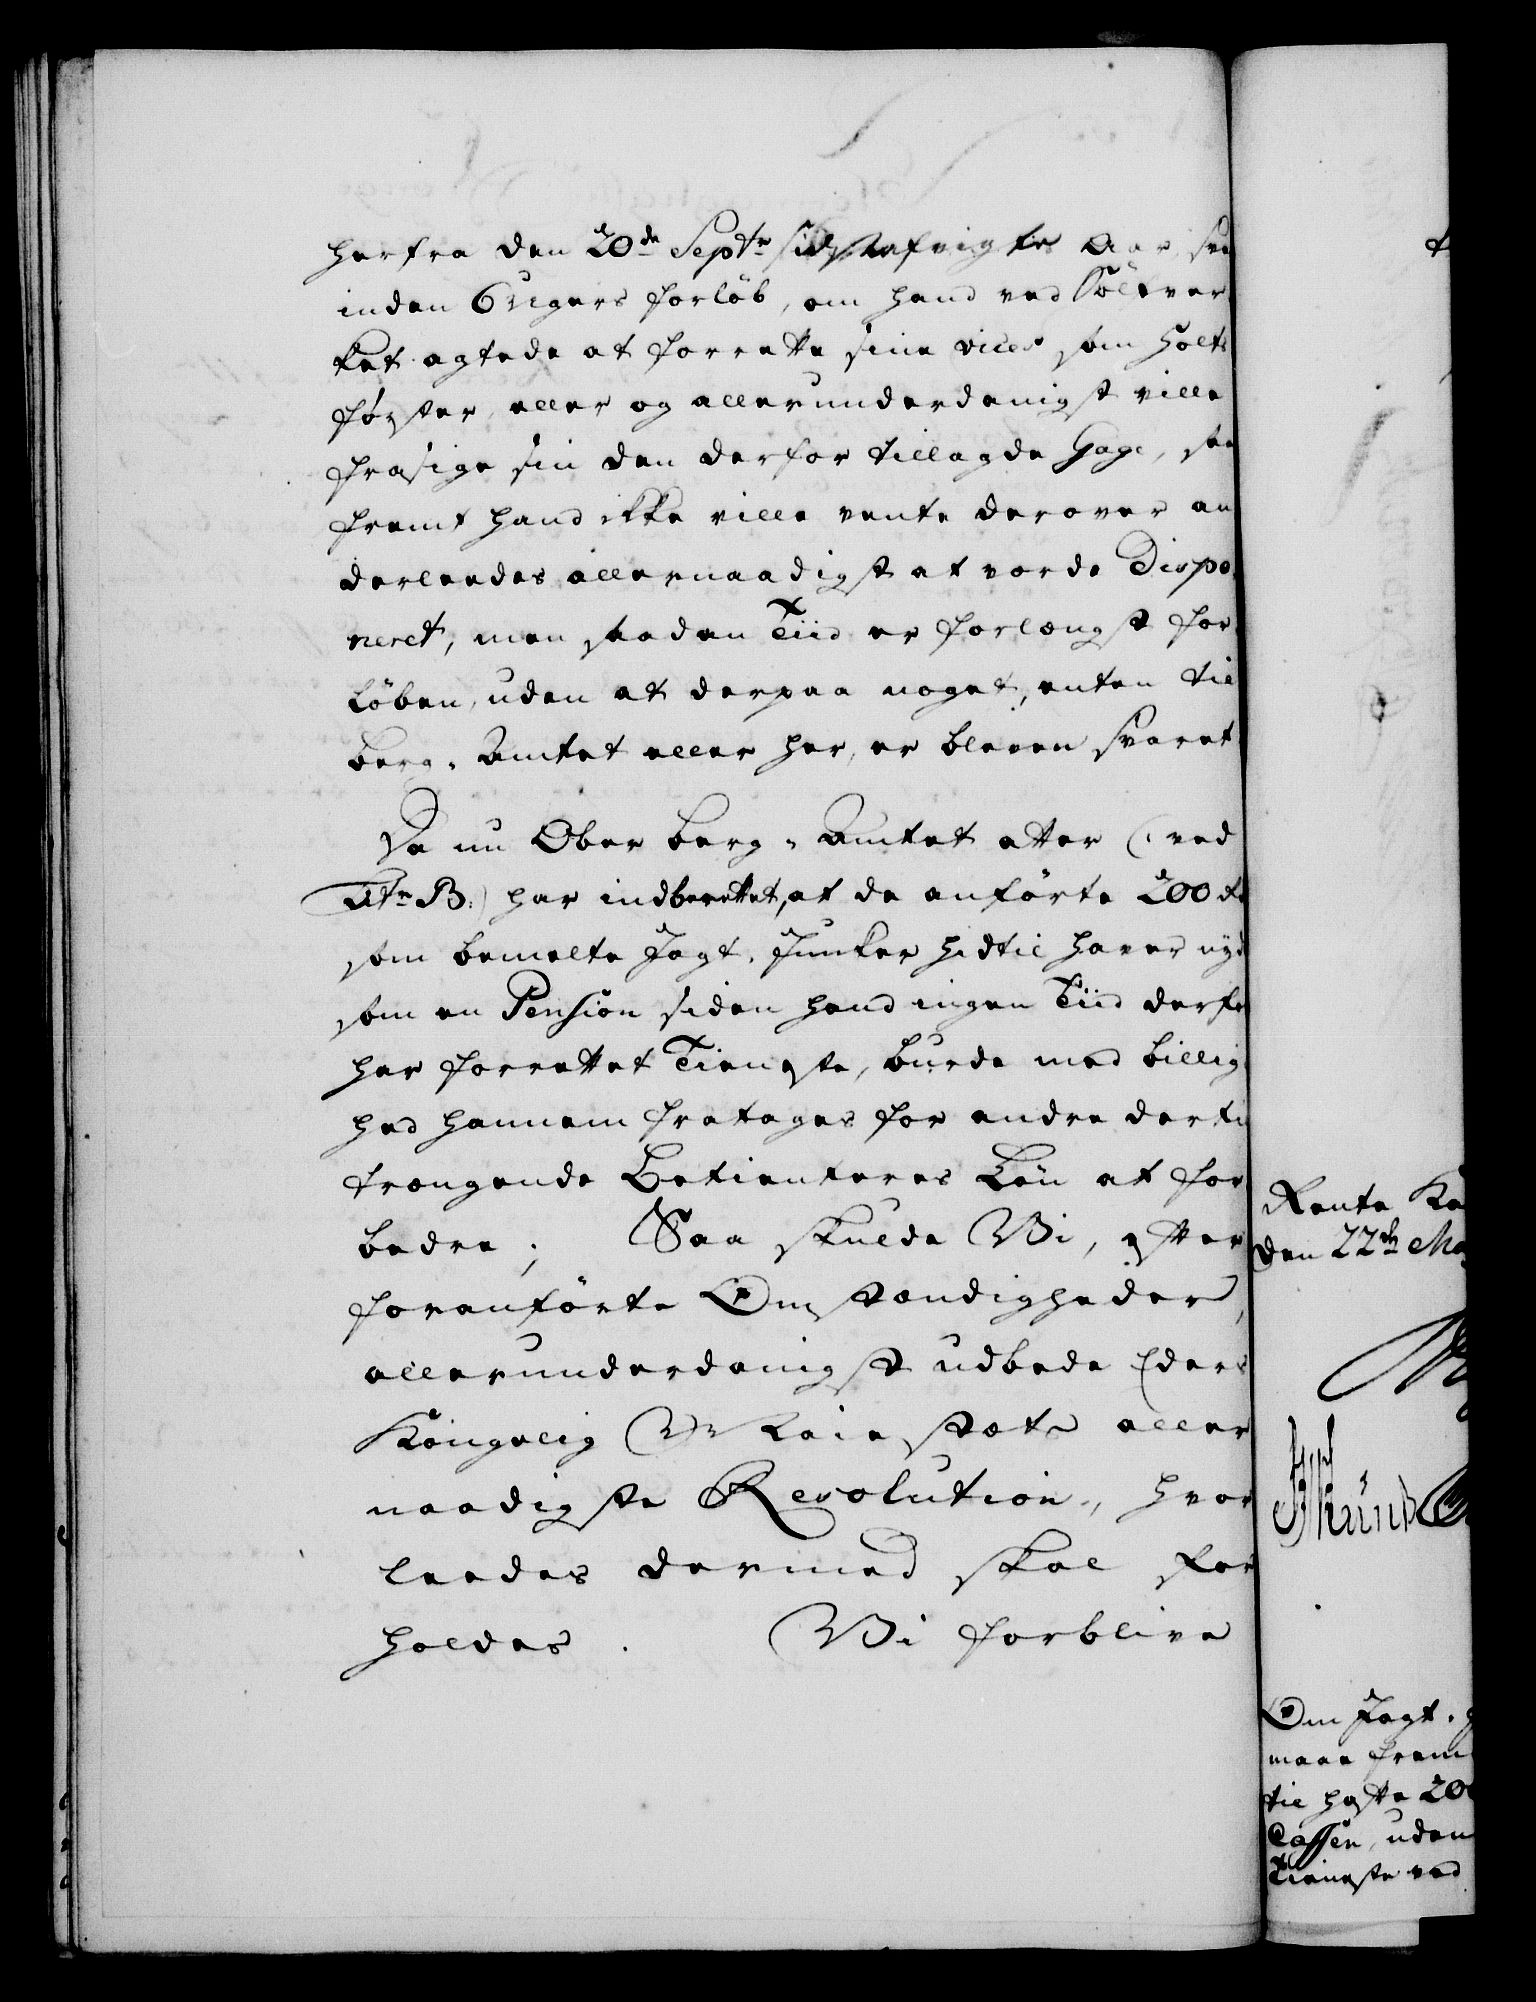 herfra den 20de Septr sidstafvigte Aar, sva
inden 6 Ugers forløb, om hand ved Sölver
ket agtede at forrette sine vices som Holts
forster, eller og allerunderdanigst ville
frasige sin den derfor tillagde Gage, saa
fremt hand ikke ville vente derover an
derleedes allernaadigst at vorde Dispo
neret, men saadan Tiid er forlængst for
løben, uden at derpaa noget, enten til
Berg-Amtet eller her, er bleven svaret
Da nu Ober Berg-Amtet atter (: ved
Litr B:) har indberettet, at de anførte 200 rd
som bemelte Jagt-Junker hidtil haver nyd
som en Pension siden hand ingen Tiid derfor
har forrettet Tieneste, burde med billig
hed hannem fratages for andre dertil
trængende Betienteres Løn at for
bedre; Saa skulde Vi, efter
foranførte Omstændigheder,
allerunderdanigst udbede Eders
Kongelig Majestæts aller
naadigste Resolution, hvor
leedes dermed skal for
holdes. Vi forblive
Rente Ka
den 22de Ma
Om Jagt-
maae frem
til hafte 200
Cassen, uden
Tieneste ved